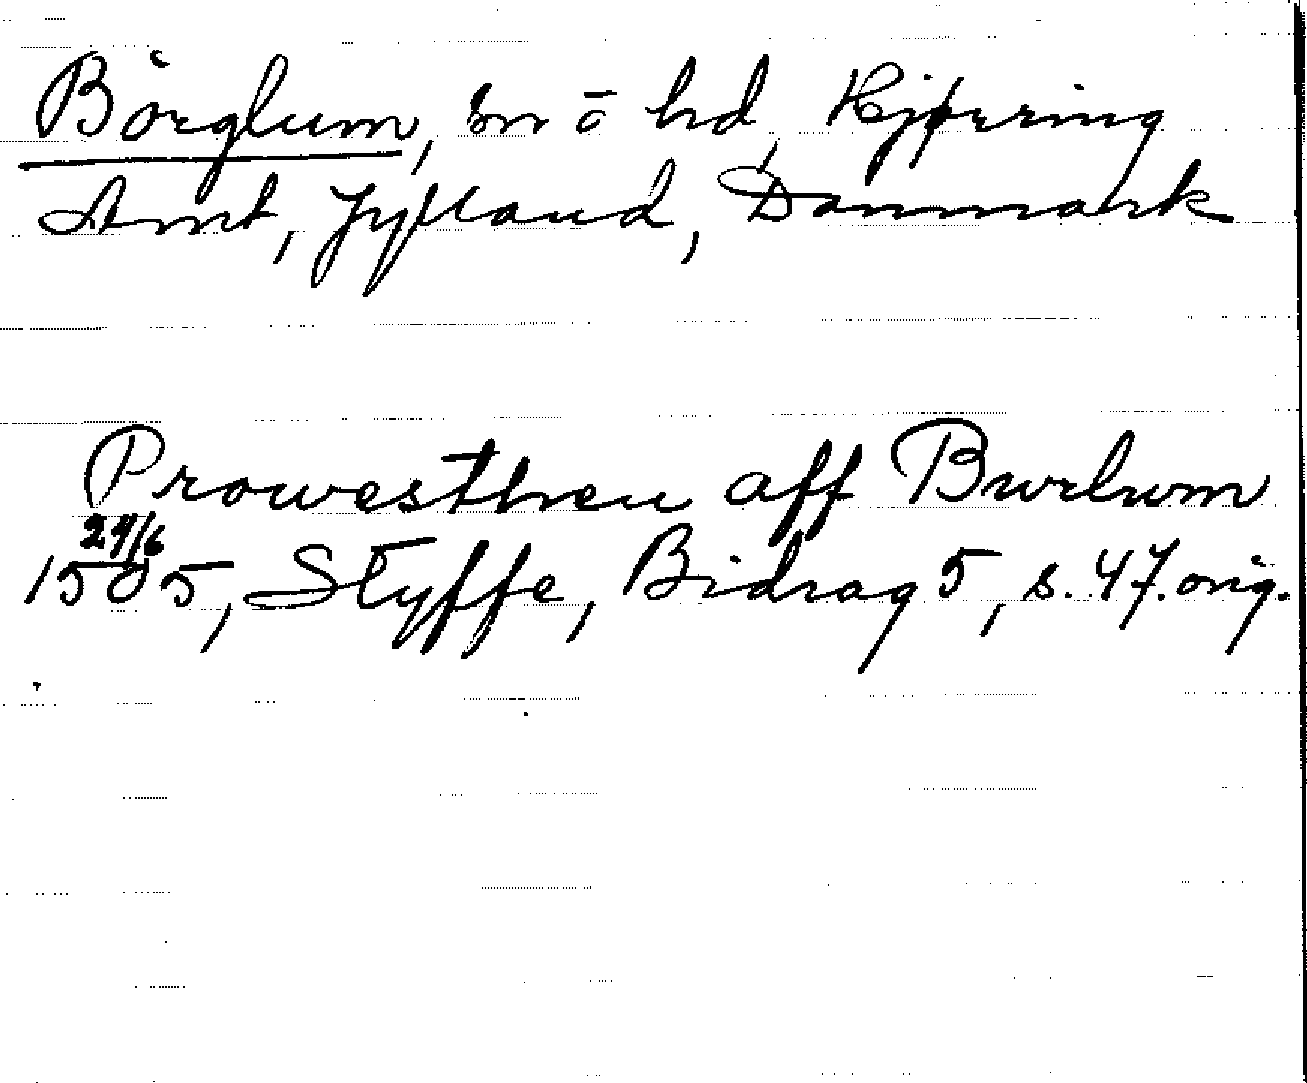 Börglum, sn ō hd, Hjørring
Amt, Jylland, Danmark
Prowesthen aff Bwrlwm
24/6
1505, Styffe, Bidrag 5, s. 47. orig.